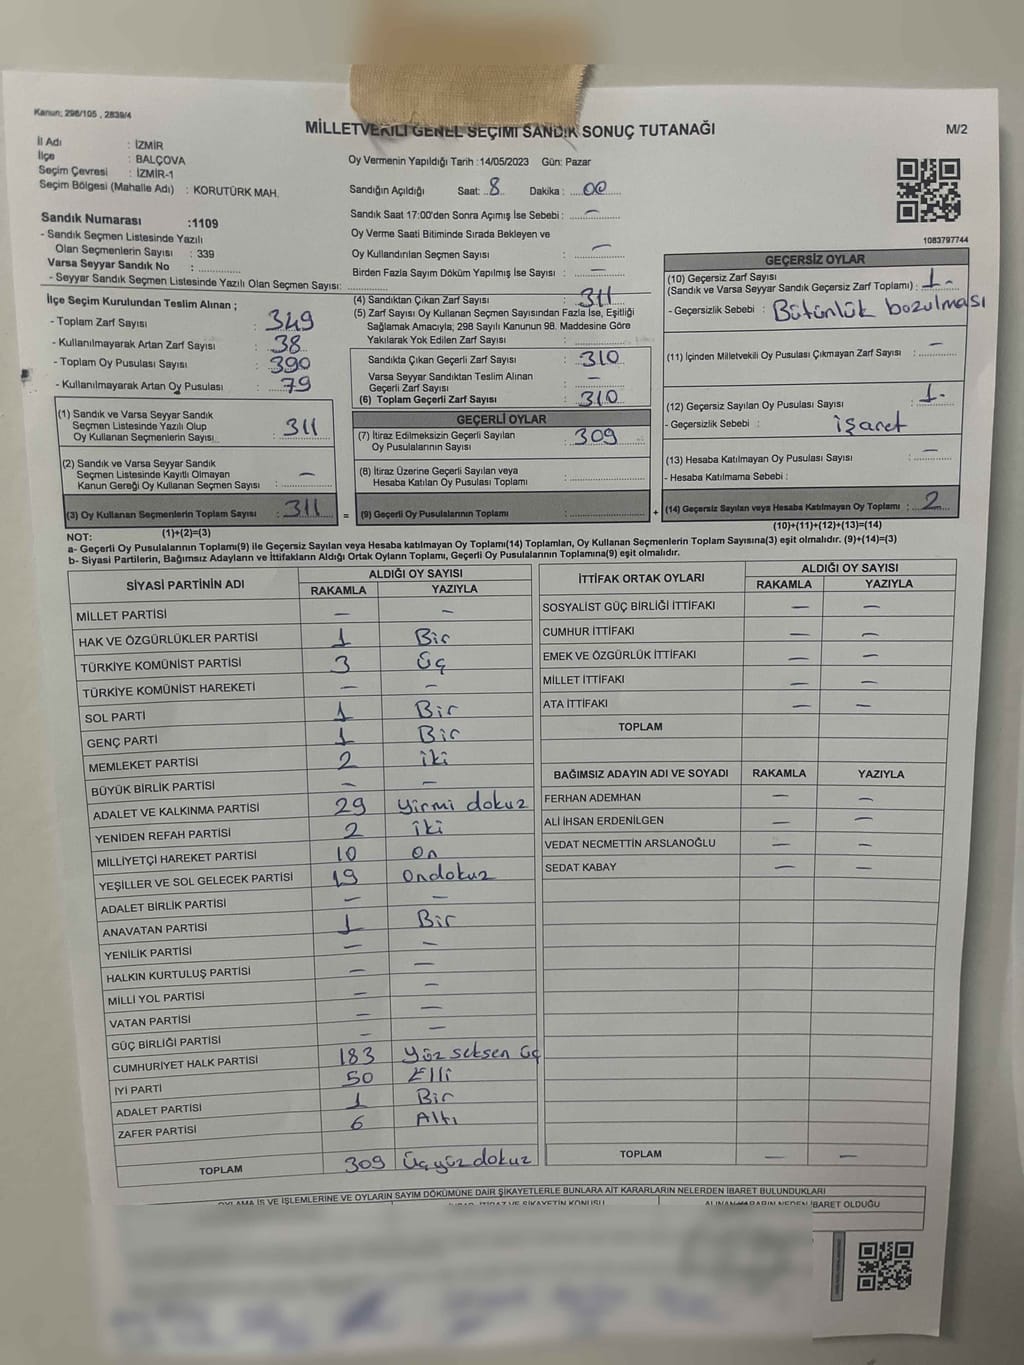 Kanun; 298/105 , 2839/4
MİLLETVEKİLİ GENEL SEÇİMİ SANDIK SONUÇ TUTANAĞI
M/2
İl Adı : İZMİR
İlçe : BALÇOVA
Seçim Çevresi : İZMİR-1
Seçim Bölgesi (Mahalle Adı) : KORUTÜRK MAH.
Oy Vermenin Yapıldığı Tarih :14/05/2023 Gün: Pazar
Sandığın Açıldığı Saat: 8 Dakika : 00
Sandık Numarası :1109
- Sandık Seçmen Listesinde Yazılı
Olan Seçmenlerin Sayısı : 339
Varsa Seyyar Sandık No :
- Seyyar Sandık Seçmen Listesinde Yazılı Olan Seçmen Sayısı:
Sandık Saat 17:00'den Sonra Açımış İse Sebebi : —
Oy Verme Saati Bitiminde Sırada Bekleyen ve
Oy Kullandırılan Seçmen Sayısı : —
Birden Fazla Sayım Döküm Yapılmış İse Sayısı : —
1083797744
İlçe Seçim Kurulundan Teslim Alınan ;
- Toplam Zarf Sayısı : 349
- Kullanılmayarak Artan Zarf Sayısı : 38
- Toplam Oy Pusulası Sayısı : 390
- Kullanılmayarak Artan Oy Pusulası : 79
(1) Sandık ve Varsa Seyyar Sandık
Seçmen Listesinde Yazılı Olup
Oy Kullanan Seçmenlerin Sayısı : 311
(2) Sandık ve Varsa Seyyar Sandık
Seçmen Listesinde Kayıtlı Olmayan
Kanun Gereği Oy Kullanan Seçmen Sayısı : —
(3) Oy Kullanan Seçmenlerin Toplam Sayısı : 311 =
(1)+(2)=(3)
(4) Sandıktan Çıkan Zarf Sayısı : 311
(5) Zarf Sayısı Oy Kullanan Seçmen Sayısından Fazla İse, Eşitliği
Sağlamak Amacıyla, 298 Sayılı Kanunun 98. Maddesine Göre
Yakılarak Yok Edilen Zarf Sayısı :
Sandıkta Çıkan Geçerli Zarf Sayısı : 310
Varsa Seyyar Sandıktan Teslim Alınan
Geçerli Zarf Sayısı : —
(6) Toplam Geçerli Zarf Sayısı : 310
GEÇERLİ OYLAR
(7) İtiraz Edilmeksizin Geçerli Sayılan
Oy Pusulasının Sayısı : 309
(8) İtiraz Üzerine Geçerli Sayılan veya
Hesaba Katılan Oy Pusulası Toplamı :
(9) Geçerli Oy Pusulalarının Toplamı : +
GEÇERSİZ OYLAR
(10) Geçersiz Zarf Sayısı
(Sandık ve Varsa Seyyar Sandık Geçersiz Zarf Toplamı) : 1-
- Geçersizlik Sebebi : Bütünlük bozulması
(11) İçinden Milletvekili Oy Pusulası Çıkmayan Zarf Sayısı : —
(12) Geçersiz Sayılan Oy Pusulası Sayısı : 1-
- Geçersizlik Sebebi : İşaret
(13) Hesaba Katılmayan Oy Pusulası Sayısı : —
- Hesaba Katılmama Sebebi :
(14) Geçersiz Sayılan veya Hesaba Katılmayan Oy Toplamı : 2
(10)+(11)+(12)+(13)=(14)
NOT:
a- Geçerli Oy Pusulalarının Toplamı(9) ile Geçersiz Sayılan veya Hesaba katılmayan Oy Toplamı(14) Toplamları, Oy Kullanan Seçmenlerin Toplam Sayısına(3) eşit olmalıdır. (9)+(14)=(3)
b- Siyasi Partilerin, Bağımsız Adayların ve İttifakların Aldığı Ortak Oyların Toplamı, Geçerli Oy Pusulalarının Toplamına(9) eşit olmalıdır.
SİYASİ PARTİNİN ADI ALDIĞI OY SAYISI
RAKAMLA YAZIYLA
MİLLET PARTİSİ — —
HAK VE ÖZGÜRLÜKLER PARTİSİ 1 Bir
TÜRKİYE KOMÜNİST PARTİSİ 3 Üç
TÜRKİYE KOMÜNİST HAREKETİ — —
SOL PARTİ 1 Bir
GENÇ PARTİ 1 Bir
MEMLEKET PARTİSİ 2 İki
BÜYÜK BİRLİK PARTİSİ — —
ADALET VE KALKINMA PARTİSİ 29 Yirmi dokuz
YENİDEN REFAH PARTİSİ 2 İki
MİLLİYETÇİ HAREKET PARTİSİ 10 On
YEŞİLLER VE SOL GELECEK PARTİSİ 19 Ondokuz
ADALET BİRLİK PARTİSİ — —
ANAVATAN PARTİSİ 1 Bir
YENİLİK PARTİSİ — —
HALKIN KURTULUŞ PARTİSİ — —
MİLLİ YOL PARTİSİ — —
VATAN PARTİSİ — —
GÜÇ BİRLİĞİ PARTİSİ — —
CUMHURİYET HALK PARTİSİ 183 Yüz seksen üç
İYİ PARTİ 50 Elli
ADALET PARTİSİ 1 Bir
ZAFER PARTİSİ 6 Altı
TOPLAM 309 Üçyüz dokuz
İTTİFAK ORTAK OYLARI ALDIĞI OY SAYISI
RAKAMLA YAZIYLA
SOSYALİST GÜÇ BİRLİĞİ İTTİFAKI — —
CUMHUR İTTİFAKI — —
EMEK VE ÖZGÜRLÜK İTTİFAKI — —
MİLLET İTTİFAKI — —
ATA İTTİFAKI — —
TOPLAM
BAĞIMSIZ ADAYIN ADI VE SOYADI RAKAMLA YAZIYLA
FERHAN ADEMHAN — —
ALİ İHSAN ERDENİLGEN — —
VEDAT NECMETTİN ARSLANOĞLU — —
SEDAT KABAY — —
TOPLAM — —
OYLAMA İŞ VE İŞLEMLERİNE VE OYLARIN SAYIM DÖKÜMÜNE DAİR ŞİKAYETLERLE BUNLARA AİT KARARLARIN NELERDEN İBARET BULUNDUKLARI
İTİRAZ VE ŞİKAYETİN KONUSU
NEDEN İBARET OLDUĞU